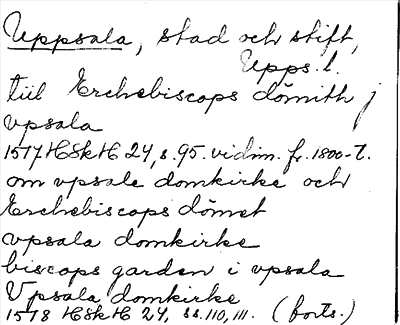 Uppsala, stad och stift,
Upps. l.
till Erchebiscops dömith j
vpsala
1577 HSkH 24, s. 95. vidim. fr. 1800-t.
om vpsale domkirke och
Erchebiscops dömet
vpsala domkirke
biscops garden i vpsala
Vpsala domkirke
1578 HSkH 24, ss. 110, 111. (forts.)